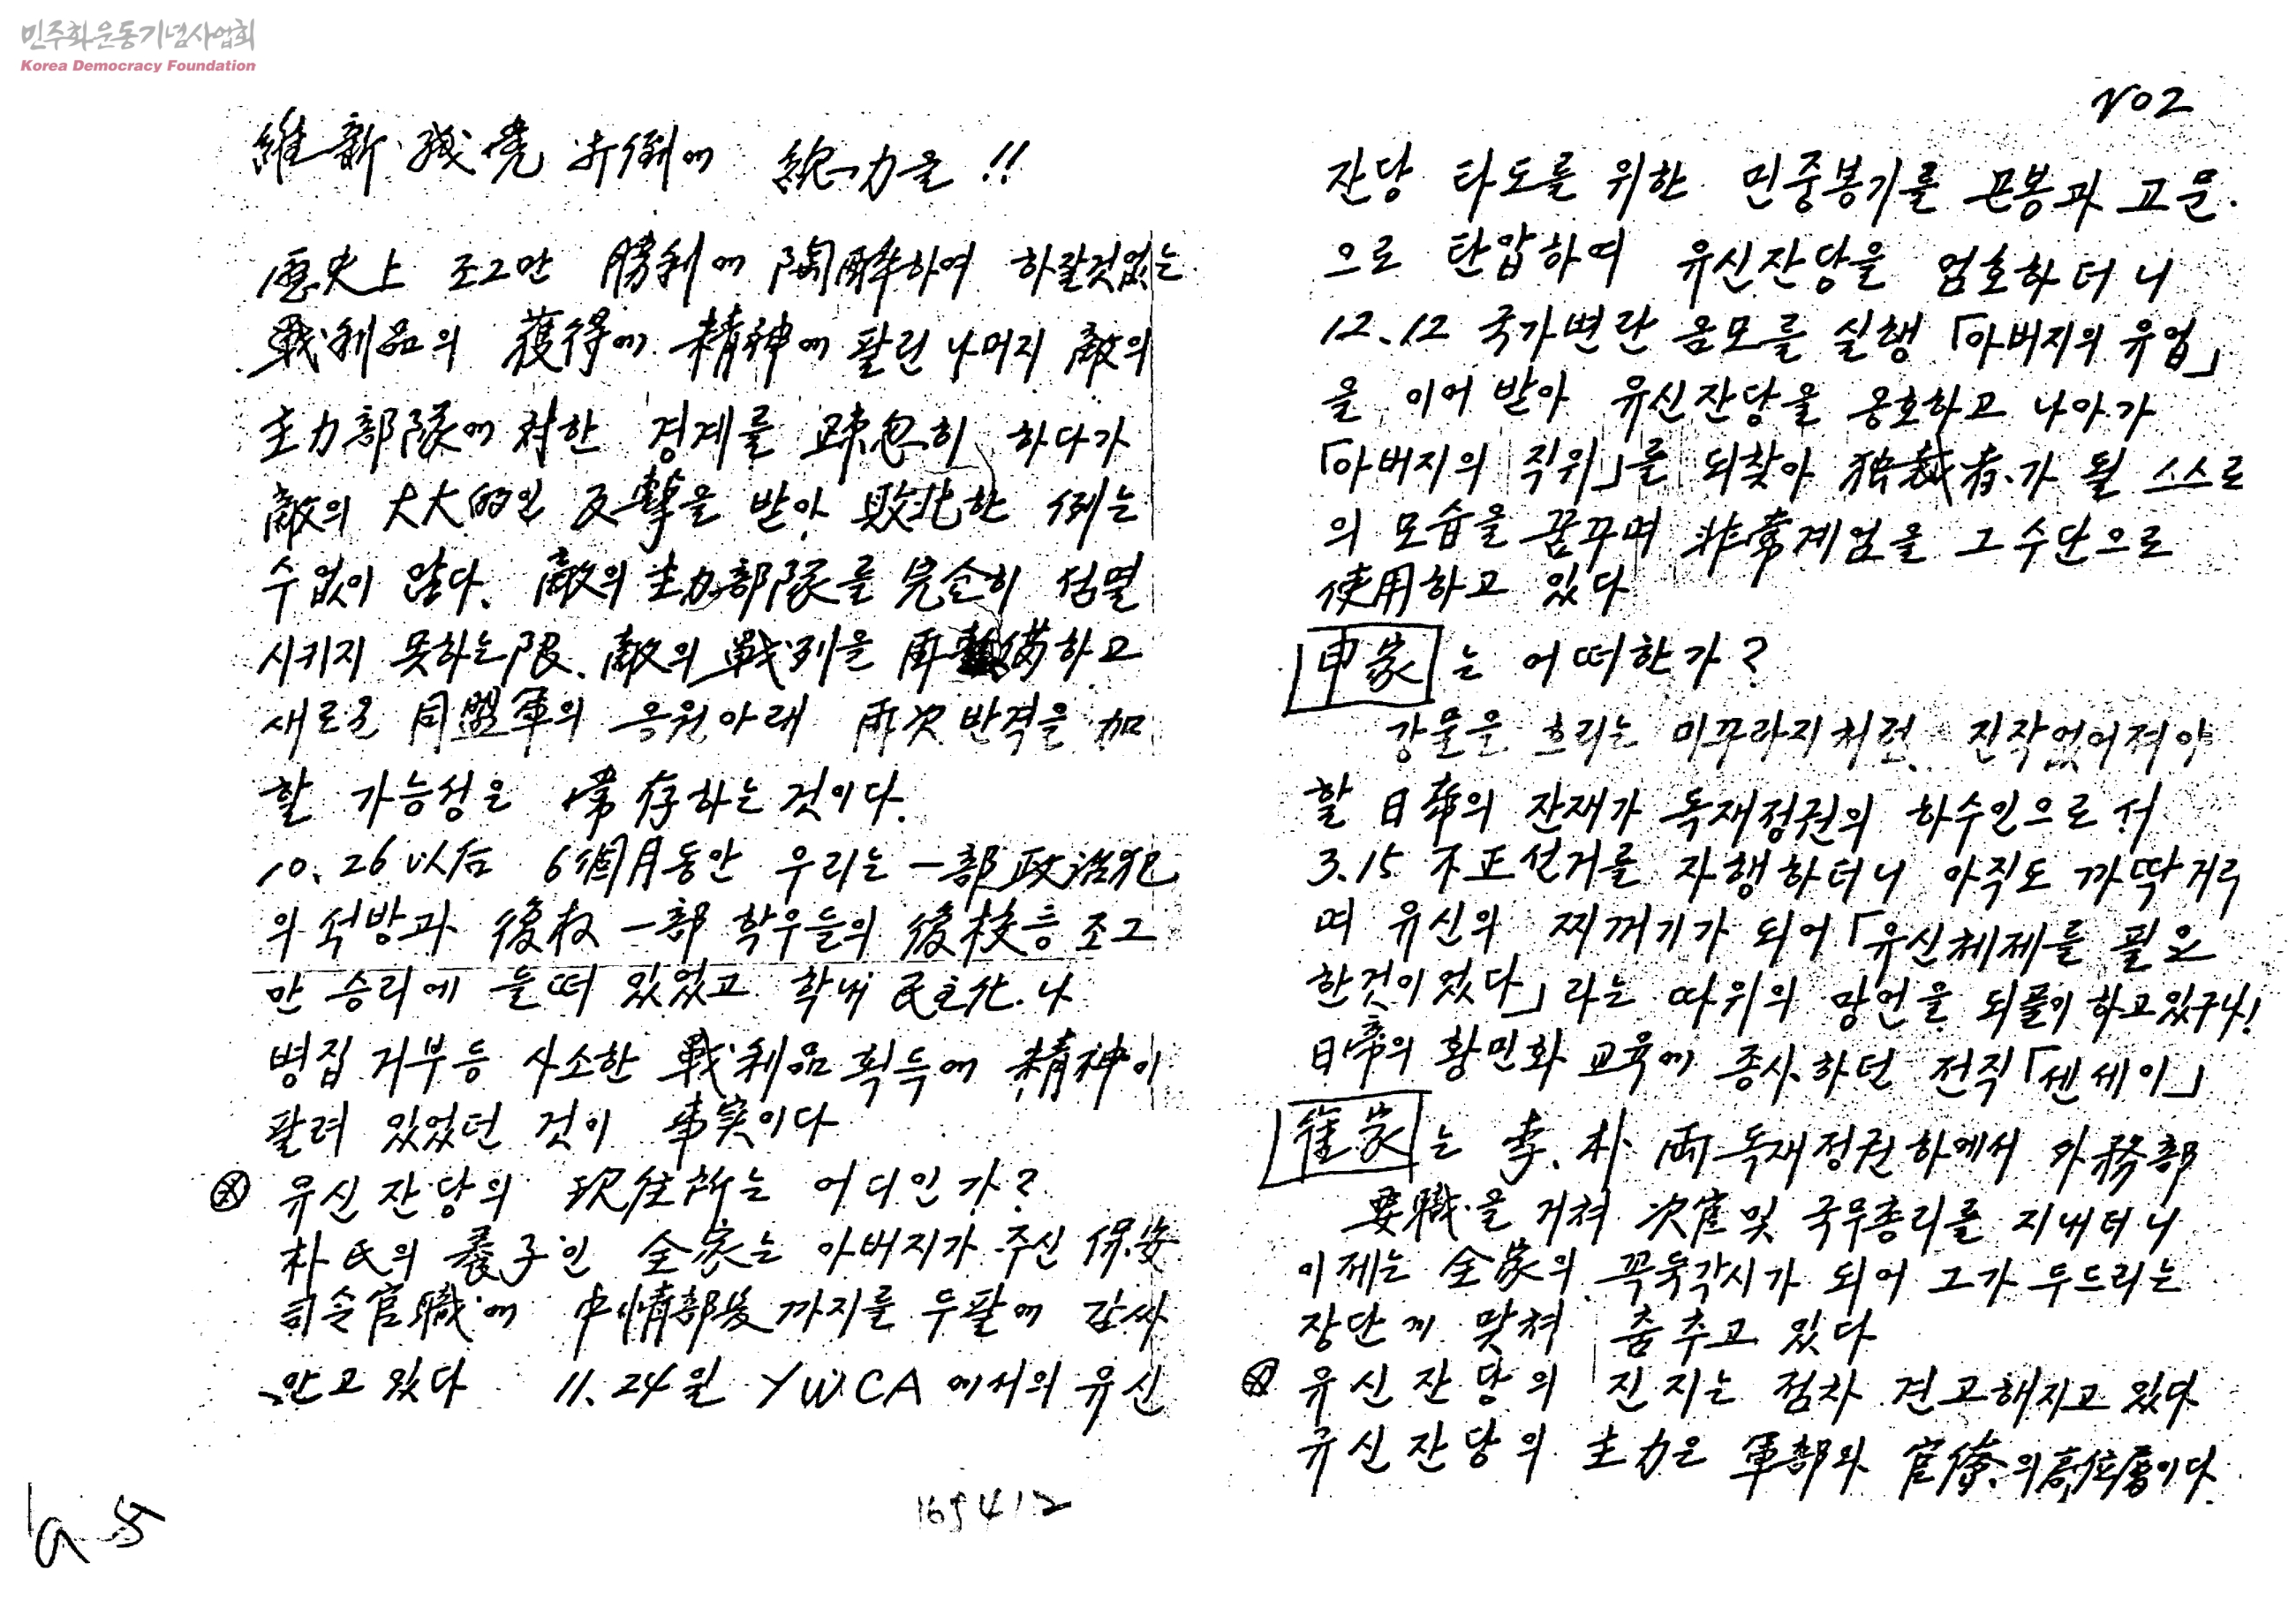 민주화운동기념사업회
Korea Democracy Foundation
維新 残党 打倒에 總力을 !!
歷史上 조그만 勝利에 陶醉하여 하잘것없는
戰利品의 獲得에 精神에 팔린 나머지 敵의
主力部隊에 対한 경계를 疎忽히 하다가
敵의 大大的인 反擊을 받아 敗北한 例는
수없이 많다. 敵의 主力部隊를 完全히 섬멸
시키지 못하는 限. 敵의 戰列을 再整備하고
새로운 同盟軍의 응원아래 再次 반격을 加
할 가능성은 常存하는 것이다.
10.26 以后 6個月동안 우리는 一部 政治犯
의 석방과 復权 一部 학우들의 復校등 조그
만 승리에 들떠 있었고 학내 民主化.나
병집 거부등 사소한 戰利品 획득에 精神이
팔려 있었던 것이 事実이다
⊗ 유신 잔당의 現住所는 어디인가?
朴氏의 養子인 全家는 아버지가 주신 保安
司令官職에 中情部長까지를 두팔에 감싸
안고 있다 11.24일 YWCA 에서의 유신
165412
No2
잔당 타도를 위한 민중봉기를 곤봉과 고문.
으로 탄압하여 유신잔당을 엄호하더니
12.12 국가변란 음모를 실행 「아버지의 유업」
을 이어 받아 유신잔당을 옹호하고 나아가
「아버지의 직위」를 되찾아 独裁者가 될 스스로
의 모습을 꿈꾸며 非常계엄을 그 수단으로
使用하고 있다
申家 는 어떠한가?
강물을 흐리는 미꾸라지처럼 진작 없어져야
할 日帝의 잔재가 독재정권의 하수인으로서
3.15 不正선거를 자행하더니 아직도 까딱거리
며 유신의 찌꺼기가 되어 「유신체제를 필요
한것이었다」라는 따위의 망언을 되풀이 하고있구나!
日帝의 황민화 교육에 종사하던 전직 「센세이」
崔家 는 李、朴 両 독재정권하에서 外務部
要職을 거쳐 次官 및 국무총리를 지내더니
이제는 全家의 꼭둑각시가 되어 그가 두드리는
장단에 맞춰 춤추고 있다
⊗ 유신 잔당의 진지는 점차 견고해지고 있다
유신 잔당의 主力은 軍部와 官僚의 高位層이다